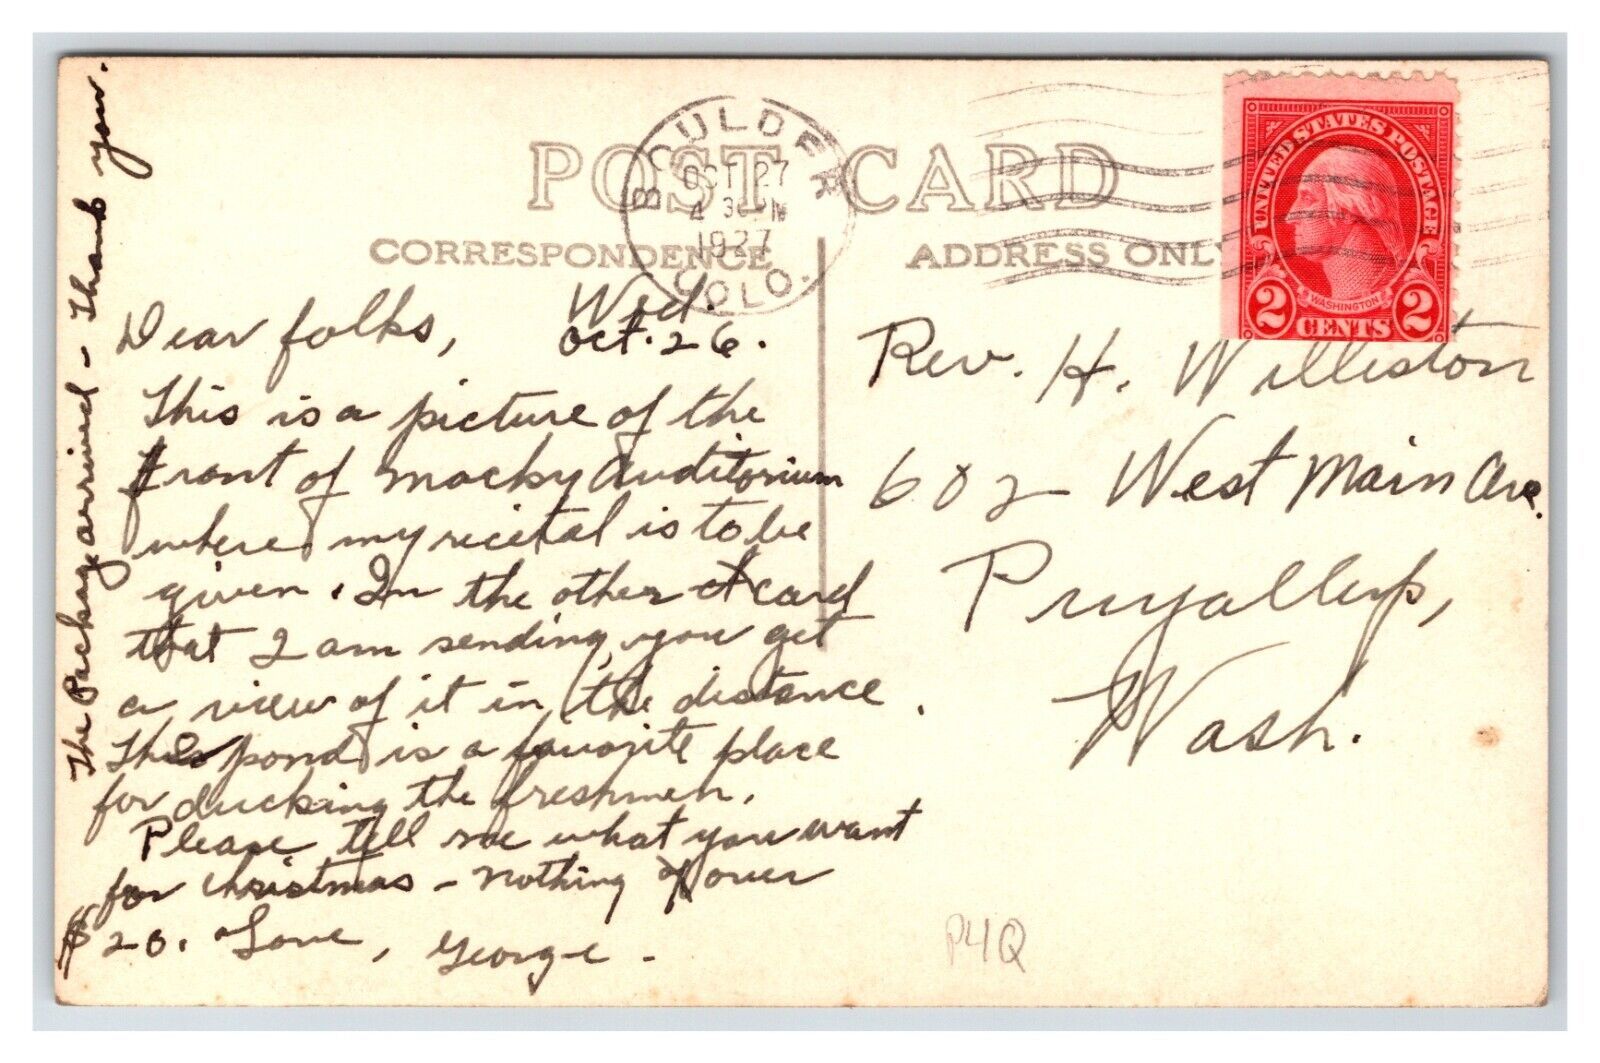 POST CARD
CORRESPONDENCE
ADDRESS ONLY
BOULDER
OCT 27
4 30 PM
1927
COLO.
UNITED STATES POSTAGE
WASHINGTON
2 CENTS 2
Wed.
Dear folks, Oct. 26.
This is a picture of the
front of Macky Auditorium
where my recital is to be
given. In the other card
that I am sending, you get
a view of it in the distance.
This pond is a favorite place
for ducking the freshmen.
Please tell me what you want
for Christmas - nothing over
$20. Love, George -
The Package arrived - Thank you.
Rev. H. Williston
602 West Main Ave.
Puyallup,
Wash.
P4Q